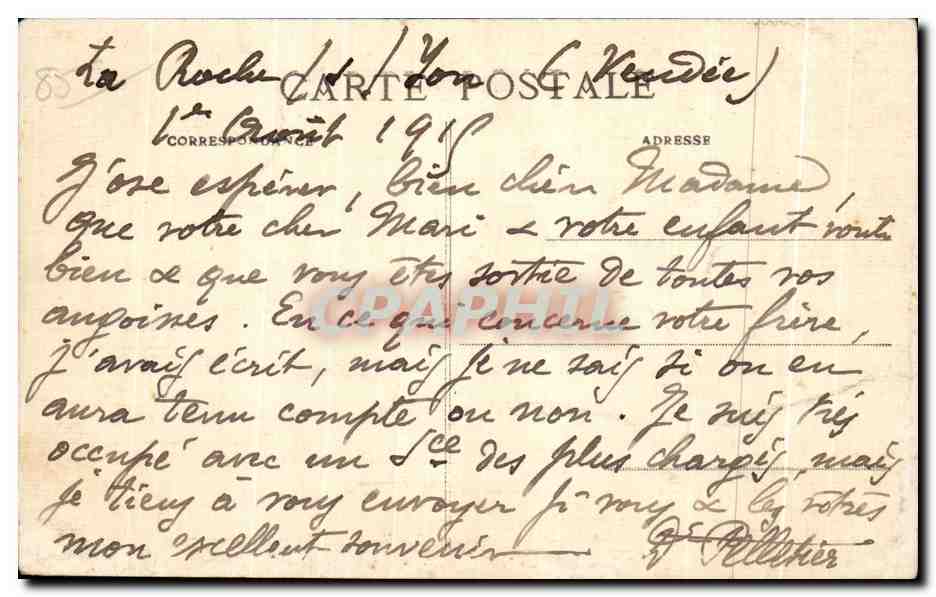 La Roche / s / Yon (Vendée)
CARTE POSTALE
85
1er Août 1915
CORRESPONDANCE
ADRESSE
J'ose espérer, bien chère Madame,
que votre cher Mari & votre enfant vont
bien & que vous êtes sortie de toutes vos
angoisses. En ce qui concerne votre frère,
j'avais écrit, mais je ne sais si on en
aura tenu compte ou non. Je suis très
occupé avec un Sce des plus chargés, mais
je tiens à vous envoyer à vous & les vôtres
mon excellent souvenir
Dr Pelletier
CPAPHIL